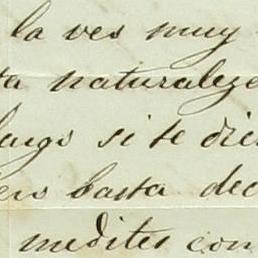 la ves muy
ta naturaleze
si te die
basta dec
medites con